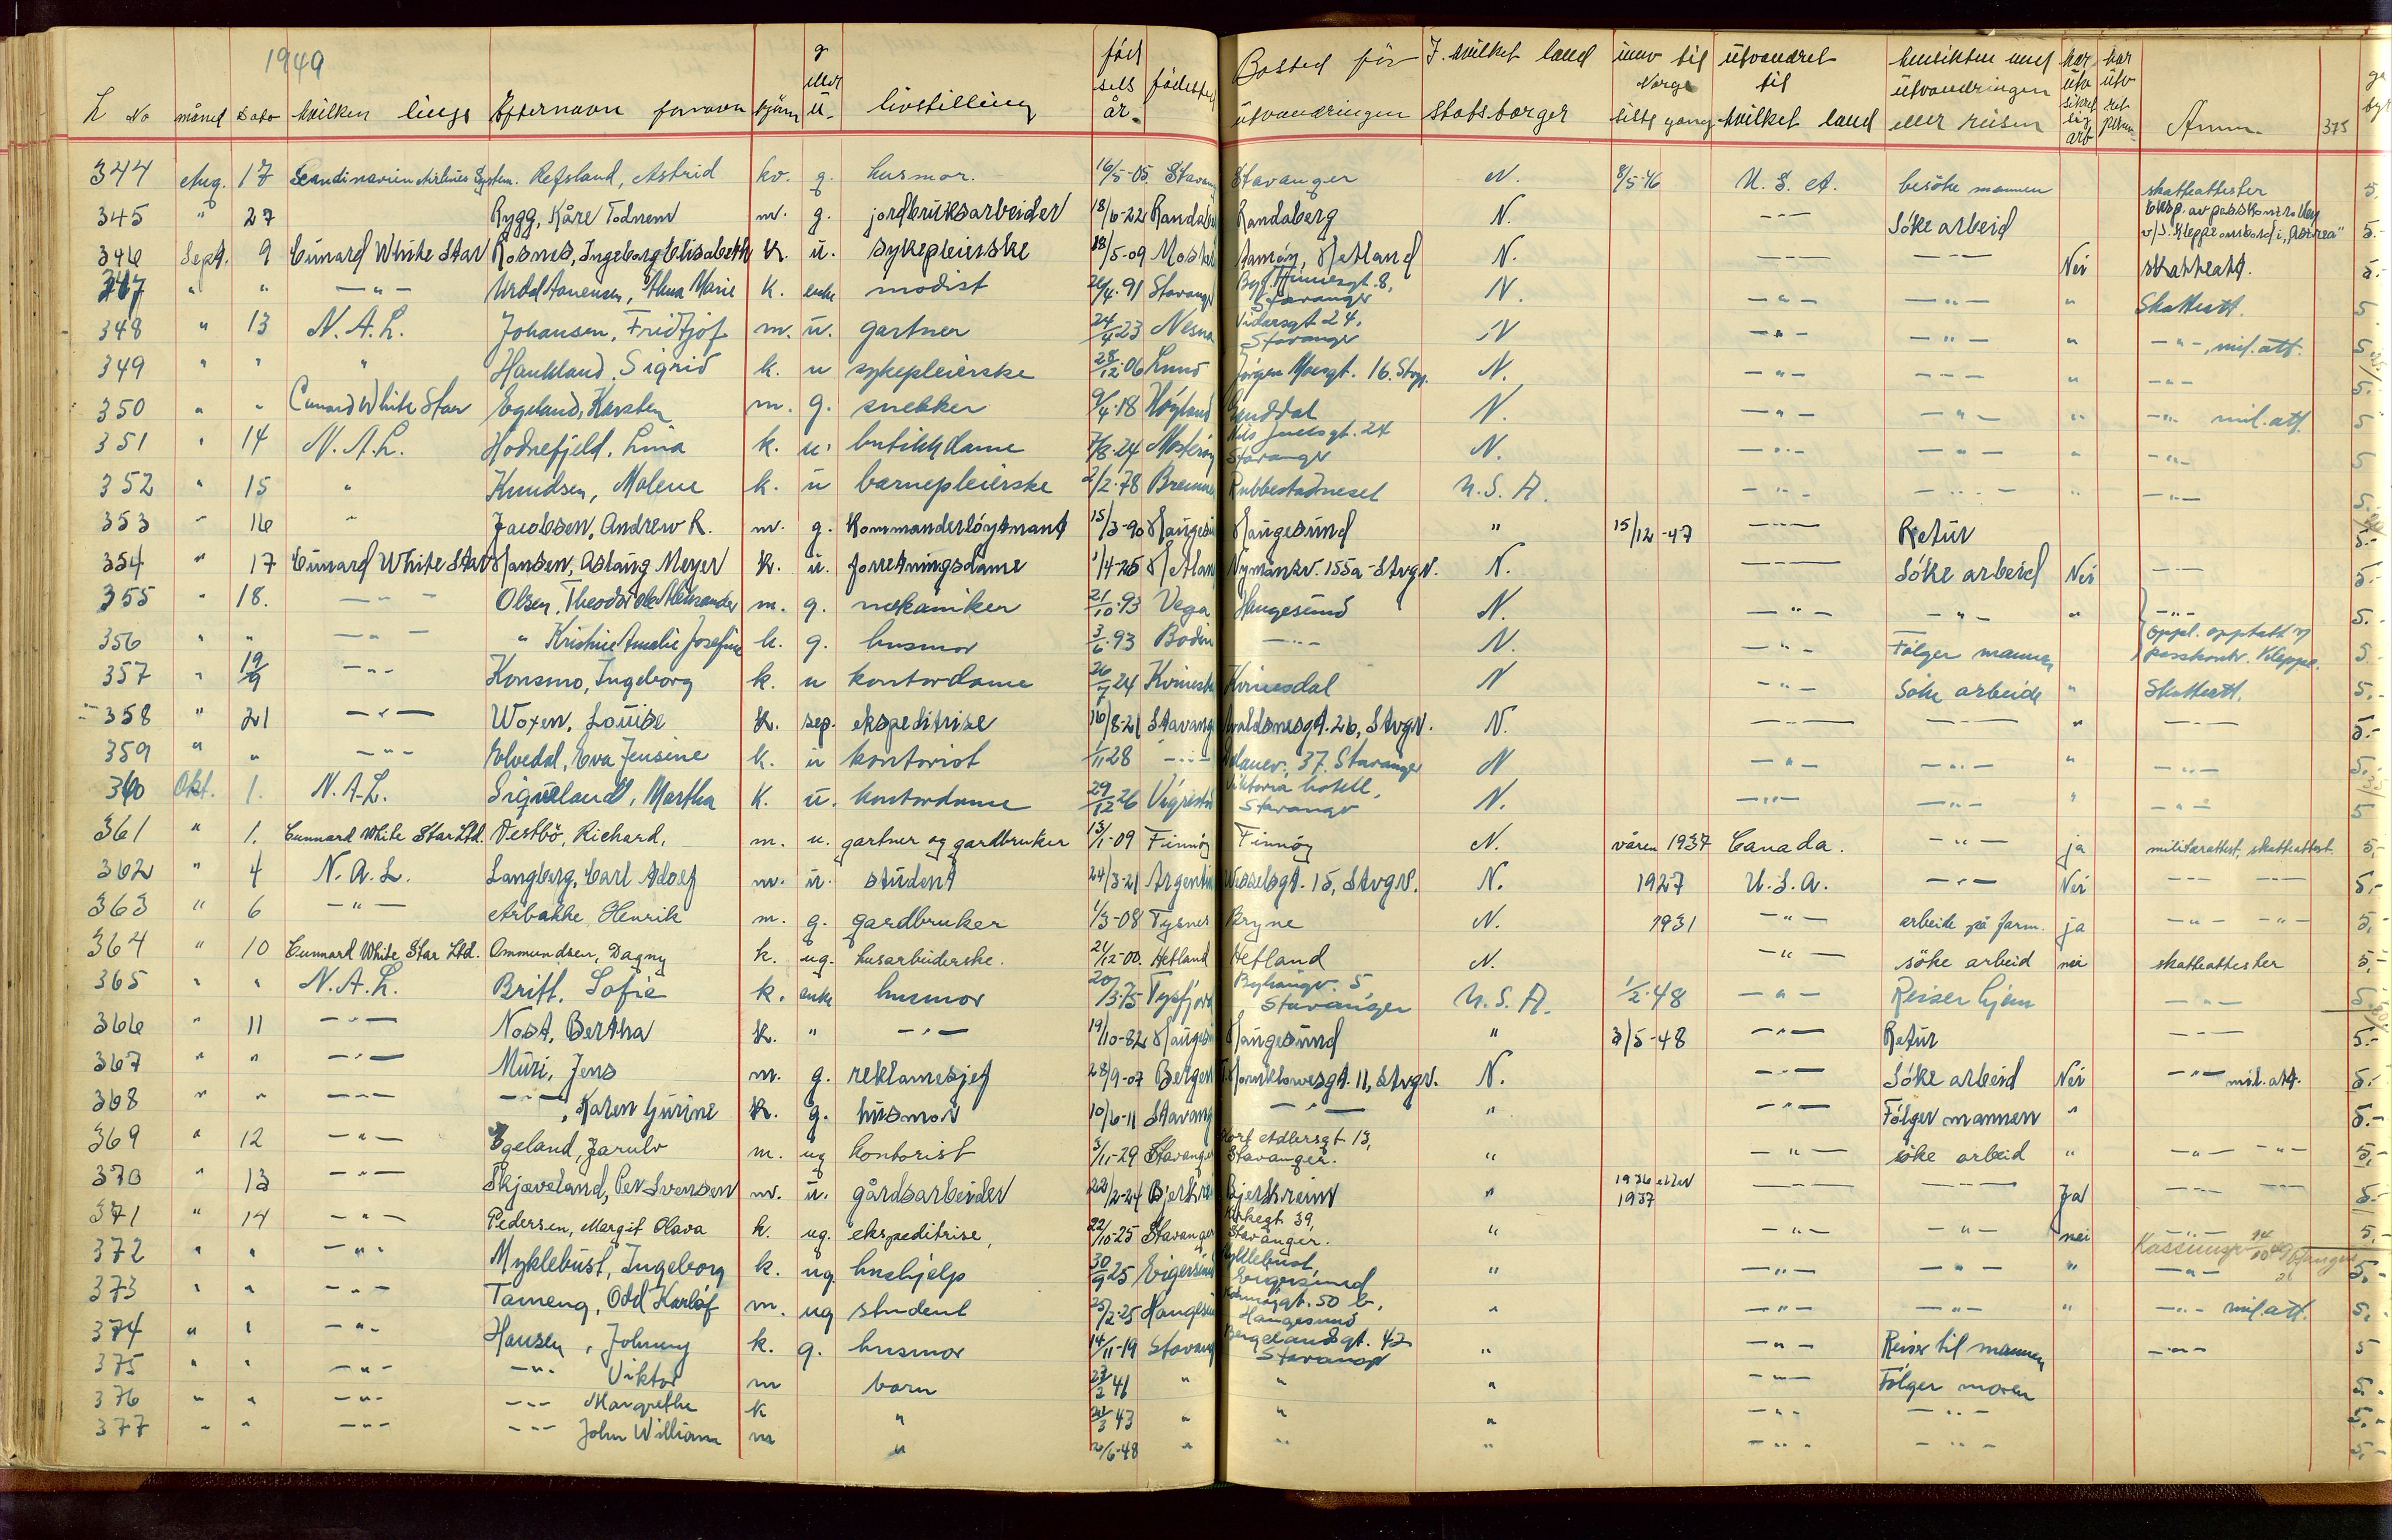 1949
L No måned Dato hvilken linje Efternavn fornavn kjønn g eller u. livstilling fødselsår. fødested Bosted før utvandringen I hvilket land statsborger innv til Norge siste gang utvandret til hvilket land hensikten med utvandringen eller reisen Anm. 375
344 Aug. 17 Scandinavien Airlines System. Refsland, Astrid kv. g. husmor. 16/5-05. Stavang Stavanger N. 8/5-46 U.S.A. besøke mannen skatteattester 5.
345 " 27 Rygg, Kåre Todnem m. g. jordbruksarbeider 18/6-22 Randabe Randaberg N. -"- Söke arbeid Eksp. av passkontrollen v/S. Kleppe ombord i "Astrea" 5.-
346 Sept. 9 Cunard White Star Rosnes, Ingeborg Elisabeth K. u. sykepleierske 18/5-09 Moster Åmöy, Hetland N. -"- -"- Nei skatteatt. 5.-
347 " " -"- Anna Marie K. enke modist 26/4.91 Stavange Stavanger N. -"- -"- " Skatteatt. 5
348 " 13 N.A.L. Johansen, Fridtjof m. u. gartner 24/4 23 Nesna Vidarsgt 24. Stavanger N -"- -"- " -"-, mil. att. 5.
349 " " " Haukland, Sigrid k. u sykepleierske 28/12.06 Lund Jörgen Moesgt. 16. Stvgr. N. -"- -"- " -"- 5.
350 " " Cunard White Star Egeland, Karsten m. g. snekker 9/4.18 Höyland N. -"- -"- " -"- mil. att. 5
351 " 14 N.A.L. Hodnefjeld, Lina k. u. butikkdame 7/8.24 Mosteröy Nils Juelsgt. 24 Stavanger N. -"- -"- " -"- 5
352 " 15 " Knudsen, Malene k. u barnepleierske 2/2.78 Bremne Rubbestadneset U.S.A. -"- -"- " -"- 5.
353 " 16 " Jacobsen, Andrew R. m. g. Kommanderlöytnant 15/3-90 Haugesu Haugesund " 15/12-47 -"- Retur 5.-
354 " 17 Cunard White Star Hansen, Aslaug Meyer K. u. forretningsdame 1/4-25 Hetlan Nymansv. 155a-Stvgr. N. -"- Söke arbeid Nei -"- 5.-
355 " 18. -"- Olsen, Theodor Ole Aleksander m. g. mekaniker 21/10.93 Vega Haugesund N. -"- -"- " -"- 5.
356 " " -"- " Kristine Amalie Josefine k. g. husmor 3/6.93 Bodin -"- N. -"- Följer mannen oppl. opptatt av passkontr. Kleppe. 5
357 " 19/9 -"- Konsmo, Ingeborg k. u kontordame 26/7 24 Kvinesda Kvinesdal N -"- Söke arbeide " Skatteatt. 5.
358 " 21 -"- Woxen, Louise K. sep. ekspeditrise 16/8-21 Stavang Avaldsnesgt. 26, Stvgr. N. -"- -"- " -"- 5.-
359 " " -"- Elvedal, Eva Jensine k. u kontorist 1/1 28 -"- 37. Stavanger N -"- -"- " -"- 5.
360 Okt. 1. N.A.L. Sigveland, Martha K. u. kontordame 29/12 26 Vigrestad Viktoria hotell, Stavanger N. -"- -"- " -"- 5
361 " 1. Cunnard White Star Ltd. Vestbö, Richard, m. u. gartner og gardbruker 13/1-09 Finnöy Finnöy N. våren 1937 Canada. -"- ja militærattest, skatteattest. 5,-
362 " 4 N.A.L. Langberg, Carl Adolf m. u. student 24/3-21 Argentin Wesselsgt. 15, Stvgr. N. 1927 U.S.A. -"- Nei -"- -"- 5.-
363 " 6 -"- Arbakke Henrik m. g. gardbruker 1/3-08 Tysnes Bryne N. 1931 -"- arbeide på farm. ja -"- -"- 5,
364 " 10 Cunnard White Star Ltd. Ommundsen, Dagny k. ug. husarbeiderske. 21/12-00. Hetland Hetland N. -"- söke arbeid nei skatteattester 5,-
365 " " N.A.L. Britt, Sofie k. enke husmor 20/3.75 Tysfjord Byhaugv. 5, Stavanger U.S.A. 1/2.48 -"- Reiser hjem -"- 5.
366 " 11 -"- Nost, Bertha K. " -"- 19/10-82 Hauges Haugesund " 3/5-48 -"- Retur -"- 5.-
367 " " -"- Muri, Jens m. g. reklamesjef 28/9-07 Bergen Hornklovesgt. 11, Stvgr. N. -"- Söke arbeid Nei -"- mil. att. 5.-
368 " " -"- -"-, Karen Gurine K. g. husmor 10/6-11 Stavang -"- " -"- Fölger mannen " 5.-
369 " 12 -"- Egeland, Jarulv m. ug kontorist 3/11-29 Stavange Kort Adlersgt 13, Stavanger. " -"- söke arbeid " -"- -"- 5,
370 " 13 -"- Skjæveland, Per Svensen m. u. gårdsarbeider 22/2-24 Bjerkre Bjerkreim " 1936 eller 1937 -"- -"- Ja -"- -"- 5.-
371 " 14 -"- Pedersen, Margit Olava k. ug. ekspeditrise, 22/10-25 Stavange Kirkegt 39, Stavanger. " -"- -"- nei -"- 5.-
372 " " -"- Myklebust, Ingeborg k. ug hushjelp 30/9 25 Eigersund Myklebust, Eigersund " -"- -"- " -"- 5.-
373 " " -"- Tameng, Odd Karlof m. ug student 25/2-25 Haugesu Karmöygt. 50 b, Haugesund " -"- -"- " -"- mil. att. 5.
374 " " -"- Hansen, Johnny k. g. husmor 14/11-19 Stavang Bergelandsgt. 42 Stavanger " -"- Reiser til mannen -"- 5
375 " " -"- -"- Viktor m barn 23/2 41 " " " -"- Fölger moren 5.
376 " " -"- -"- Margrethe k " 3 43 " " " -"- -"- 5.-
377 " " -"- -"- John William m " /6-48 " " " -"- -"- 5.-